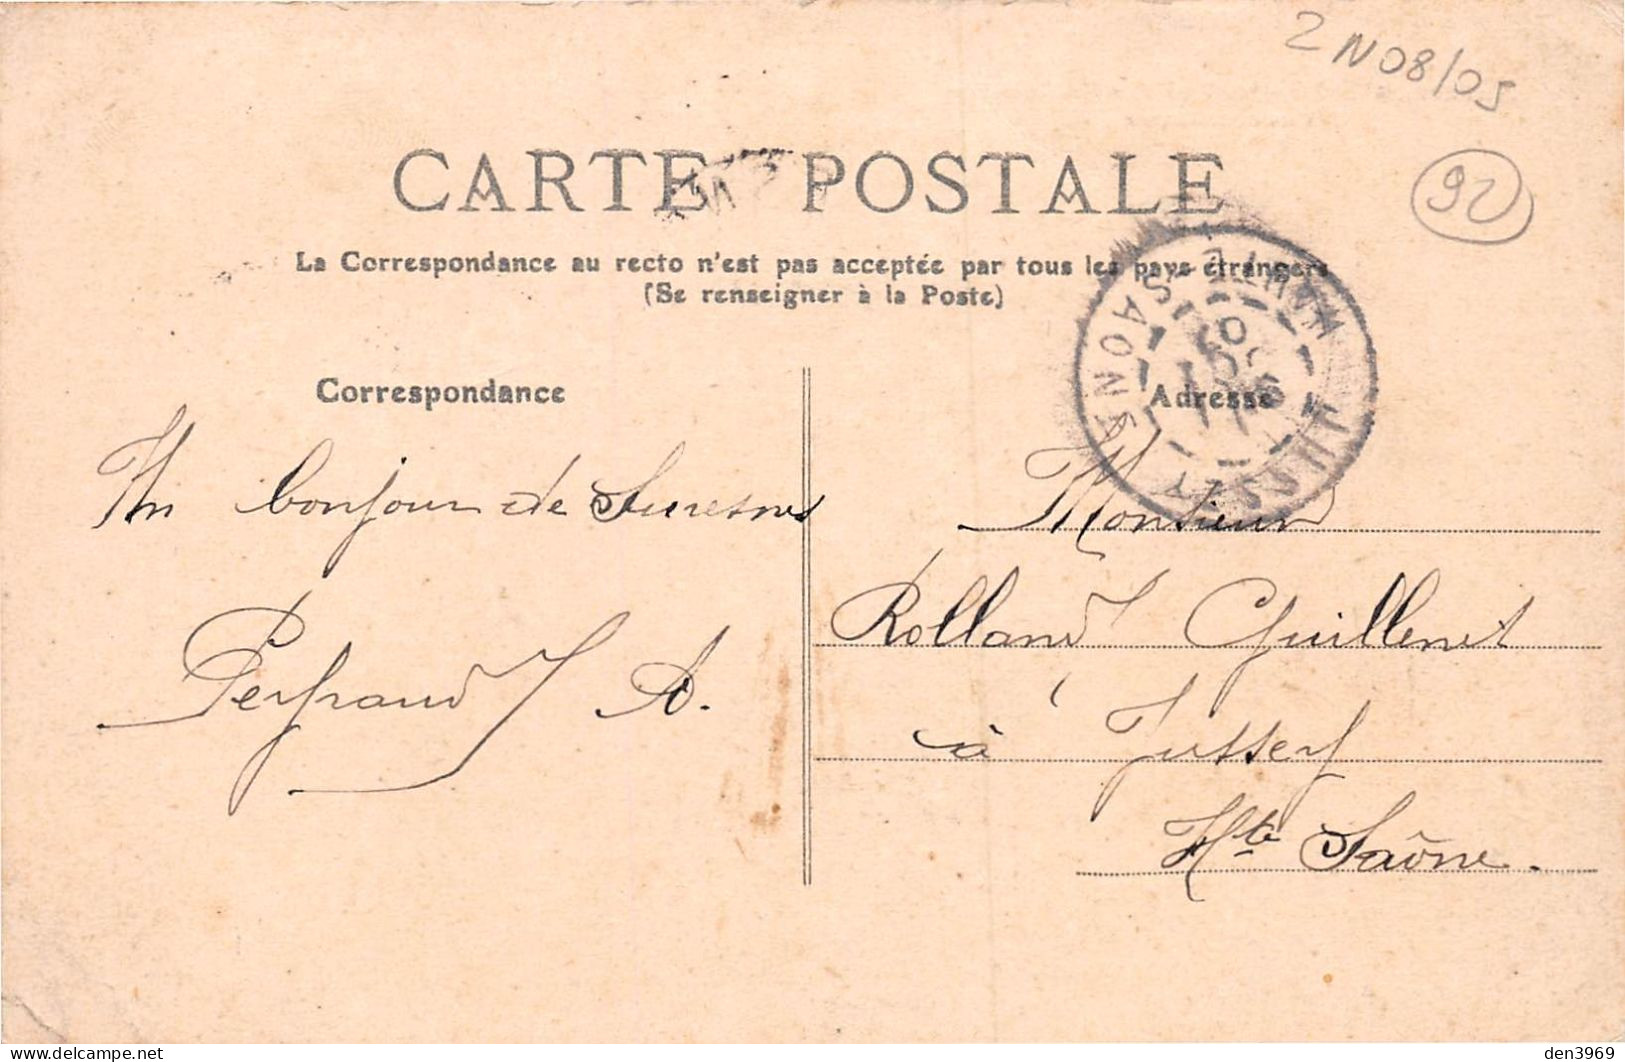 2 N08/05
92
CARTE POSTALE
La Correspondance au recto n'est pas acceptée par tous les pays étrangers
(Se renseigner à la Poste)
Correspondance
Un bonjour de Suresnes
A.
Adresse
JUSSEY
HAUTE-SAONE
Monsieur
Rolland Guillenet
à Jussey
Hte Saône.
den3969